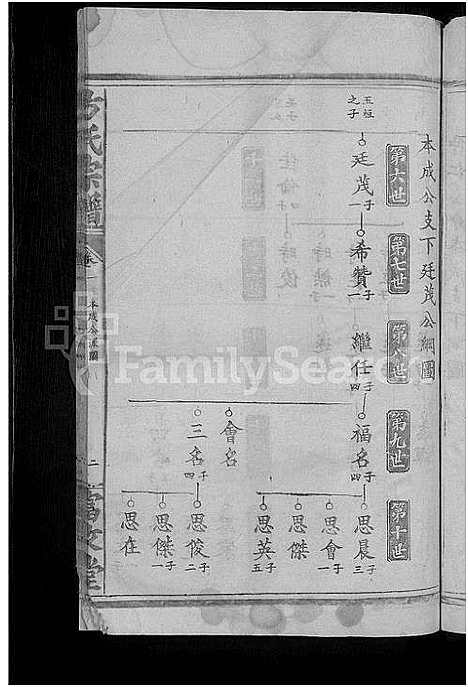 本成公支下廷茂公綱圖
第六世
第七世
第八世
第九世
第十世
玉垣之子
廷茂 一子
希贊 一子
繼任 四子
福名 四子
思晨 三子
思會 一子
思傑
思英 五子
會名
三名 四子
思俊 二子
思傑 一子
思在
方氏宗譜
卷一
本成公派圖
二
富文堂
FamilySearch